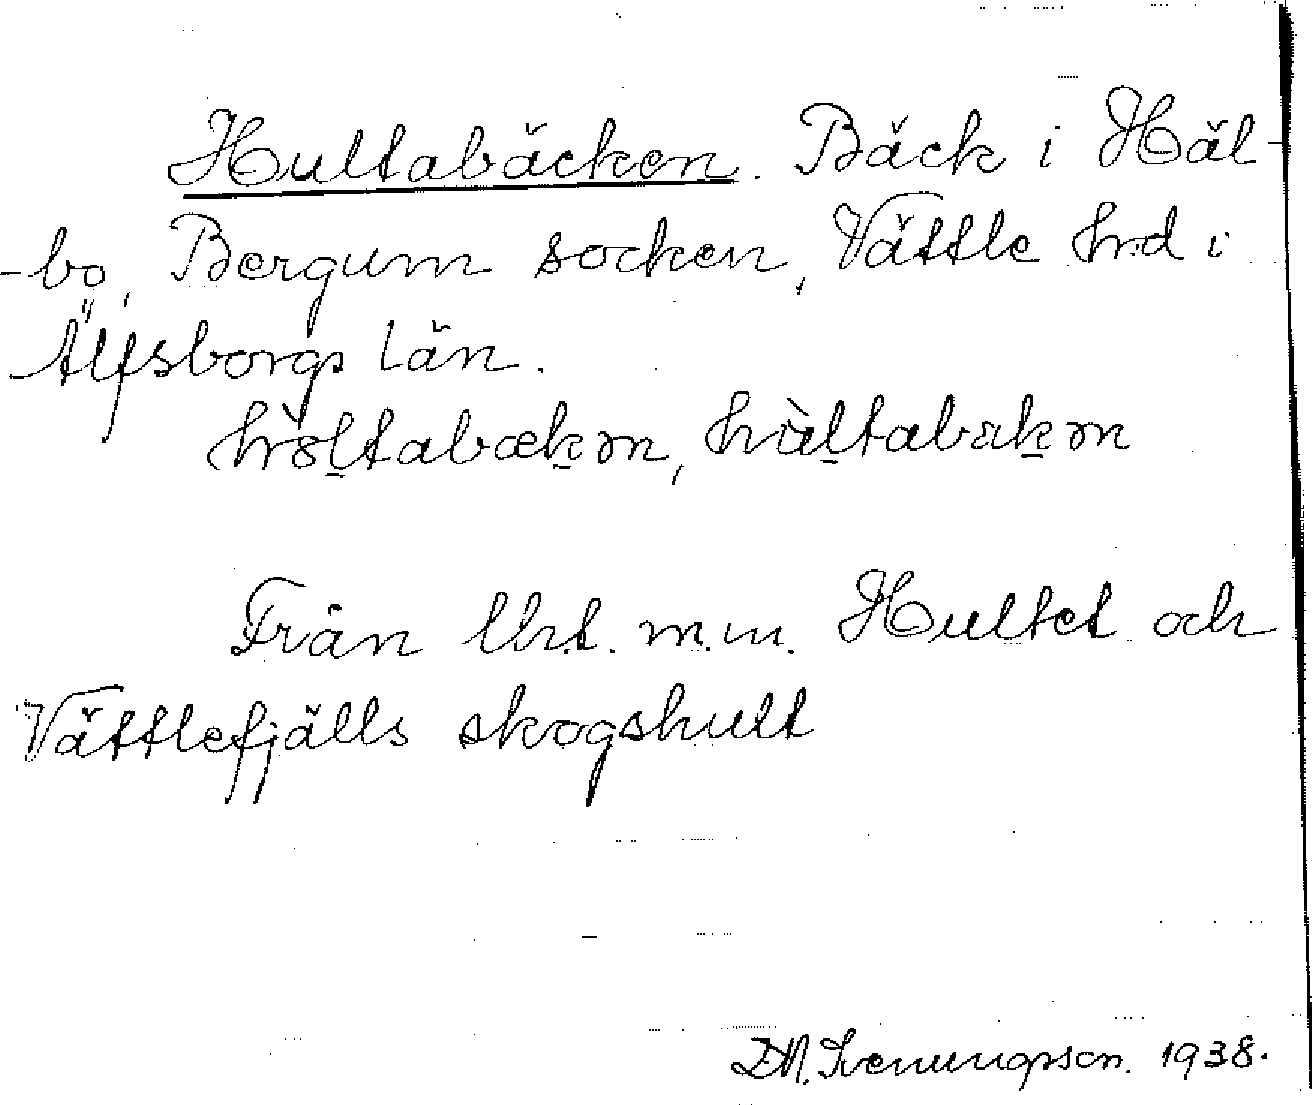 Hultabäcken. Bäck i Häl-
-bo, Bergum socken, Vättle hrd i
Älfsborgs län.
hòltabækən, hùltabækən
Från lht. m.m. Hultet och
Vättlefjälls skogshult
1938.